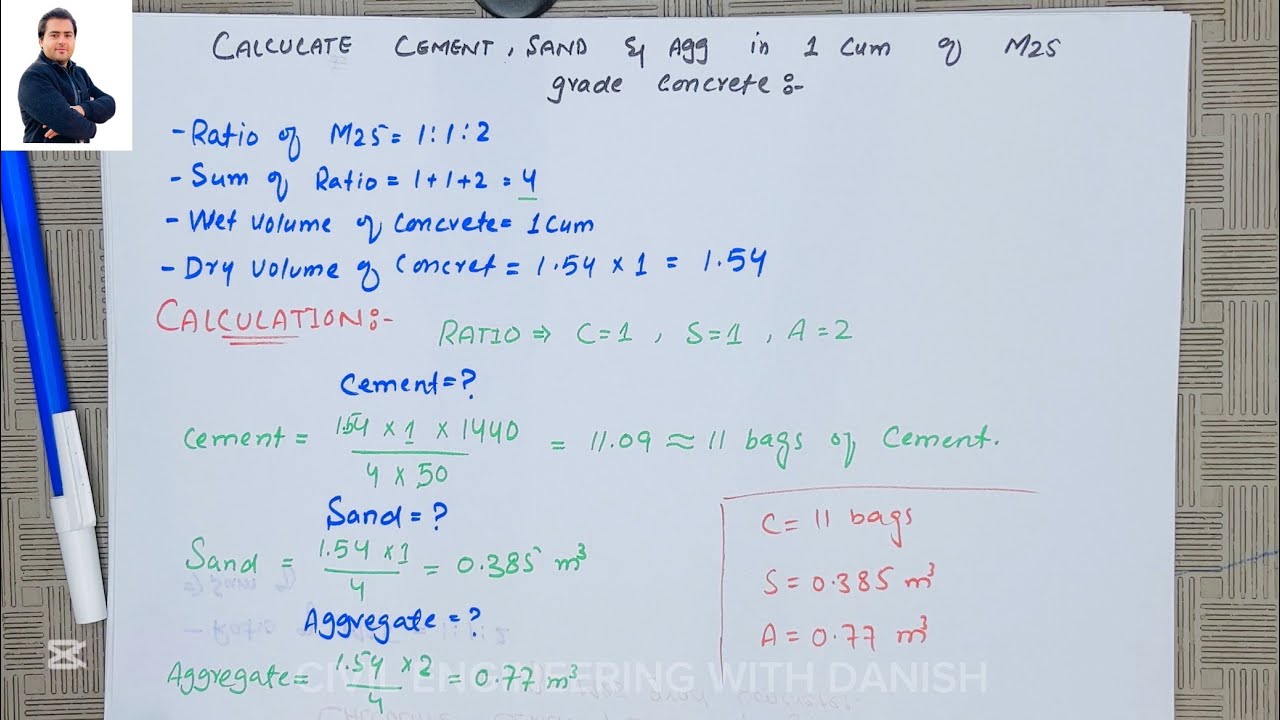 CALCULATE CEMENT, SAND & Agg in 1 Cum of M25
grade Concrete:-
- Ratio of M25 = 1:1:2
- Sum of Ratio = 1+1+2 = 4
- Wet Volume of Concrete = 1 Cum
- Dry Volume of Concret = 1.54 × 1 = 1.54
CALCULATION:-
RATIO ⇒ C=1 , S=1 , A=2
Cement = ?
Cement = 1.54 × 1 × 1440 / 4 × 50 = 11.09 ≈ 11 bags of Cement.
Sand = ?
Sand = 1.54 × 1 / 4 = 0.385 m³
Aggregate = ?
Aggregate = 1.54 × 2 / 4 = 0.77 m³
C = 11 bags
S = 0.385 m³
A = 0.77 m³
CIVIL ENGINEERING WITH DANISH